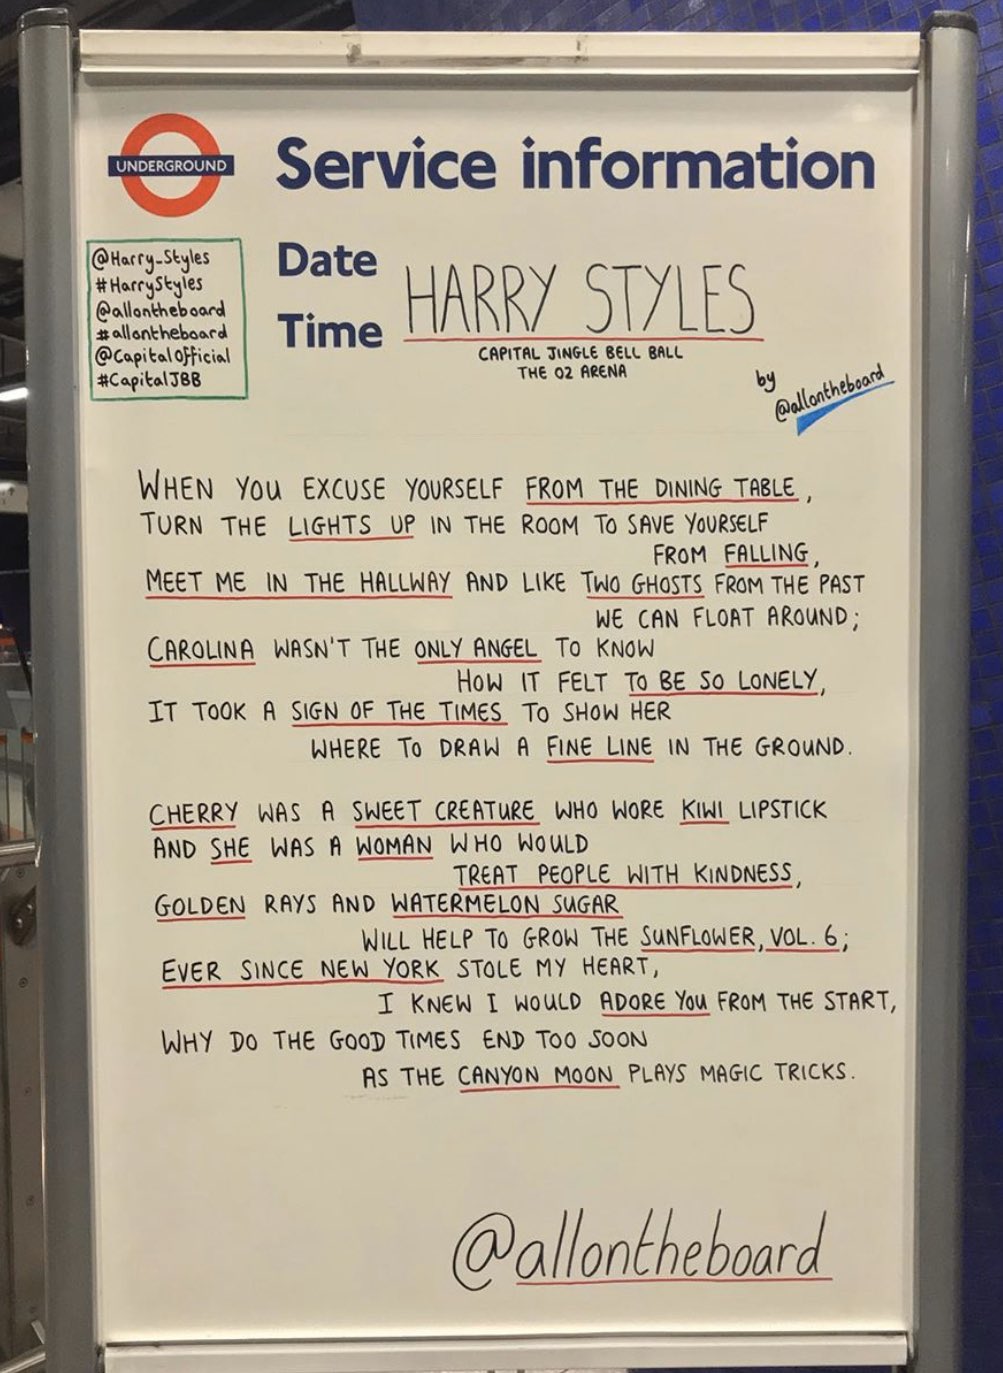 UNDERGROUND
Service information
@Harry_Styles
#HarryStyles
@allontheboard
#allontheboard
@CapitalOfficial
#CapitalJBB
Date
Time
HARRY STYLES
CAPITAL JINGLE BELL BALL
THE O2 ARENA
by
@allontheboard
WHEN YOU EXCUSE YOURSELF FROM THE DINING TABLE,
TURN THE LIGHTS UP IN THE ROOM TO SAVE YOURSELF
FROM FALLING,
MEET ME IN THE HALLWAY AND LIKE TWO GHOSTS FROM THE PAST
WE CAN FLOAT AROUND;
CAROLINA WASN'T THE ONLY ANGEL TO KNOW
HOW IT FELT TO BE SO LONELY,
IT TOOK A SIGN OF THE TIMES TO SHOW HER
WHERE TO DRAW A FINE LINE IN THE GROUND.
CHERRY WAS A SWEET CREATURE WHO WORE KIWI LIPSTICK
AND SHE WAS A WOMAN WHO WOULD
TREAT PEOPLE WITH KINDNESS,
GOLDEN RAYS AND WATERMELON SUGAR
WILL HELP TO GROW THE SUNFLOWER, VOL. 6;
EVER SINCE NEW YORK STOLE MY HEART,
I KNEW I WOULD ADORE YOU FROM THE START,
WHY DO THE GOOD TIMES END TOO SOON
AS THE CANYON MOON PLAYS MAGIC TRICKS.
@allontheboard